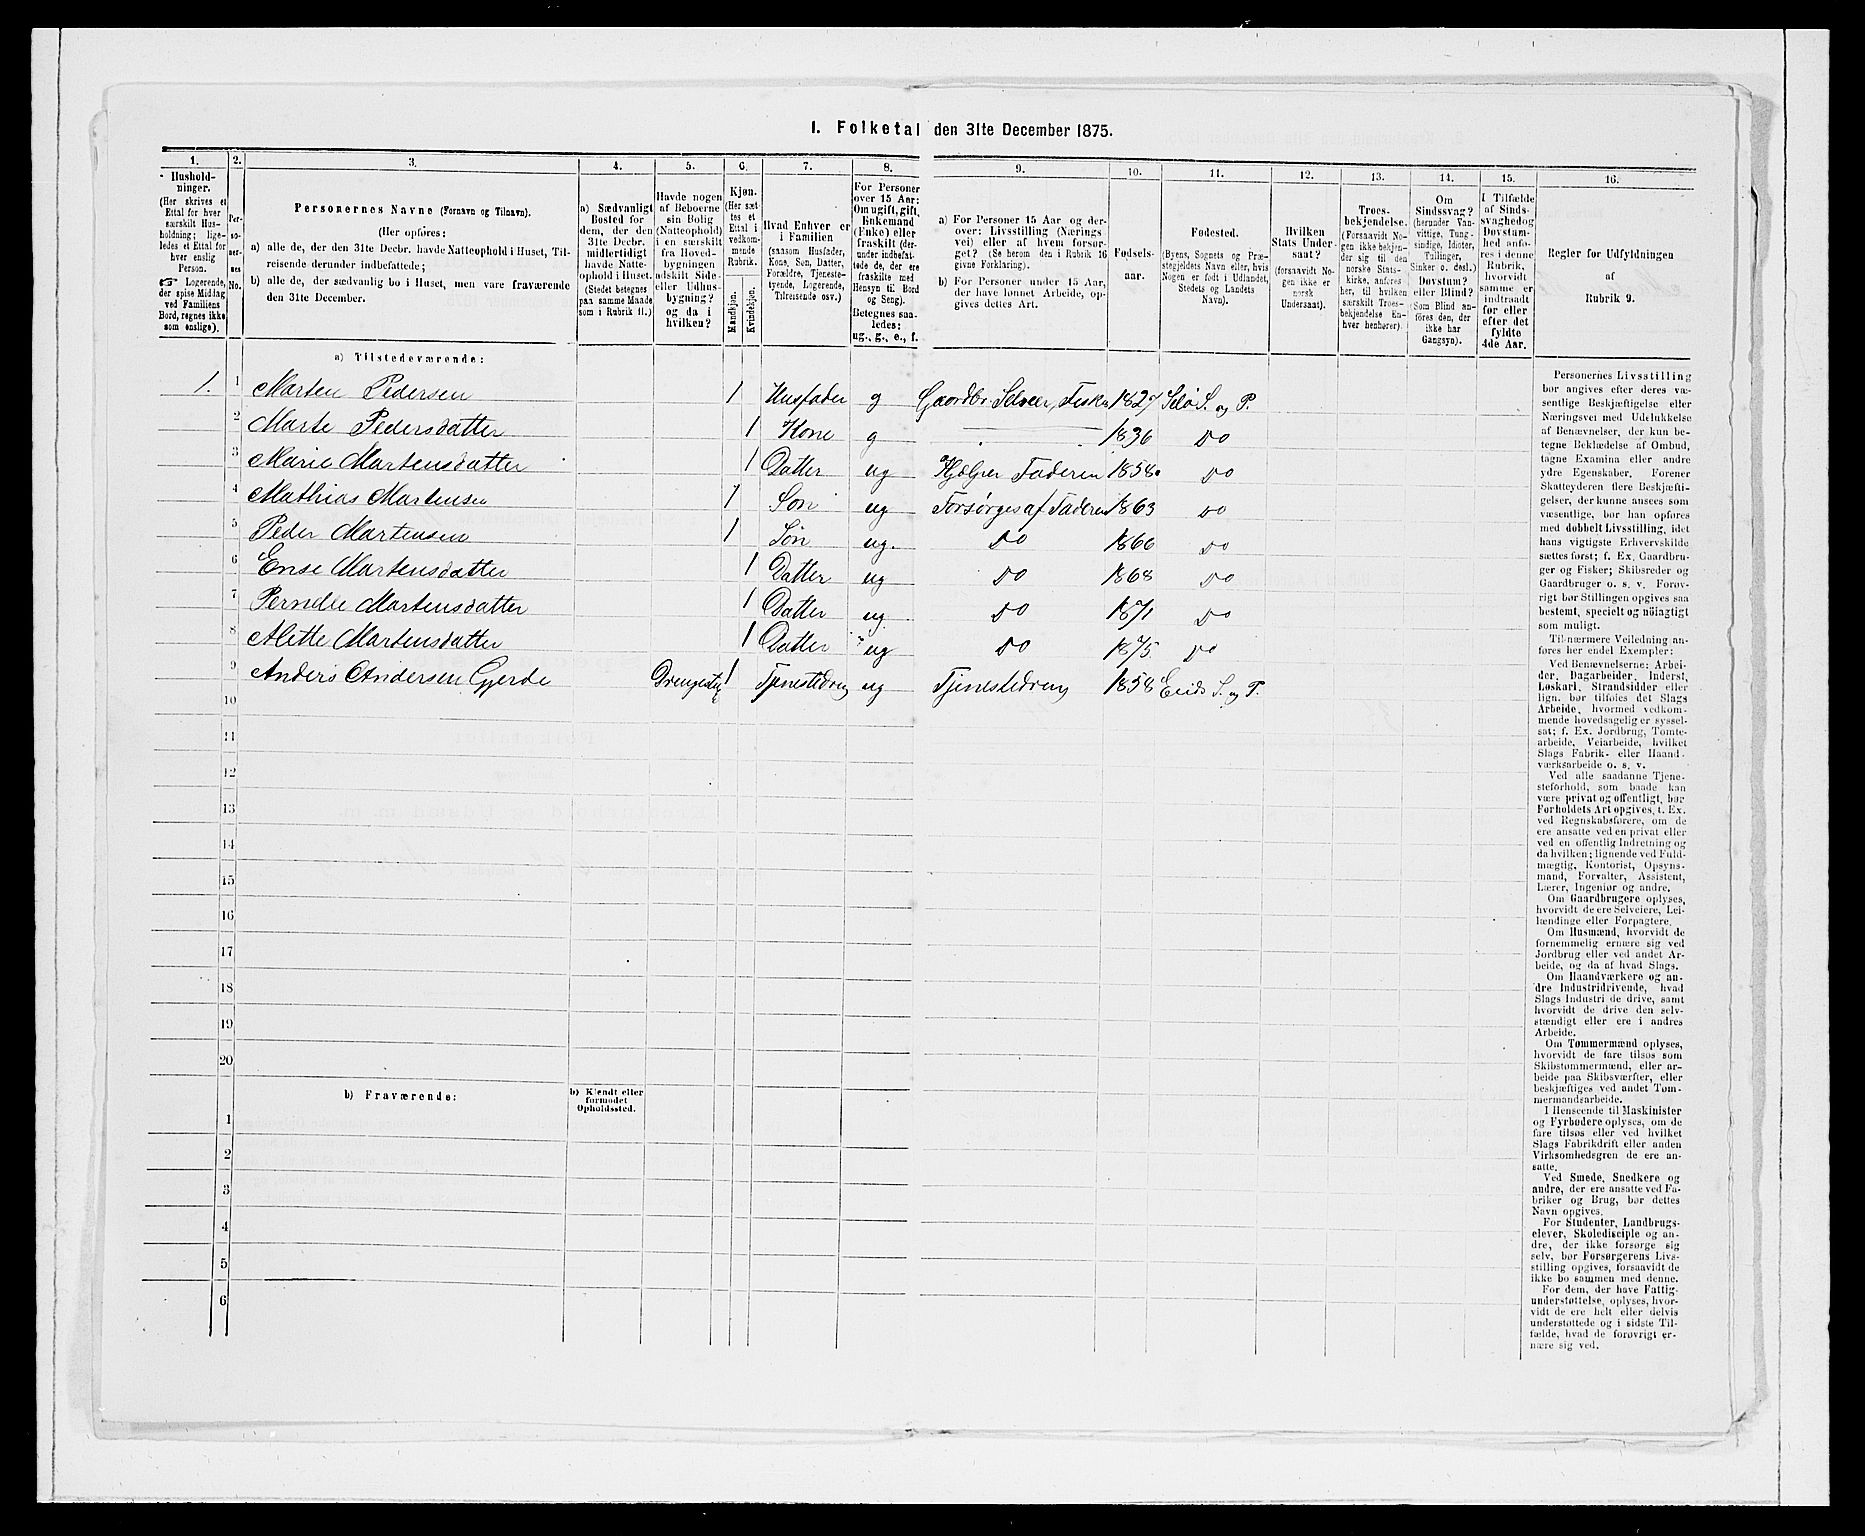 I. Folketal den 31te December 1875.
1. 2. 3. 4. 5. 6. 7. 8. 9. 10. 11. 12. 13. 14. 15. 16.
Hushold-
ninger.
(Her skrives et
Ettal for hver
særskilt Hus-
holdning; lige-
ledes et Ettal for
hver enslig
Person.
Logerende,
der spise Middag
ved Familiens
Bord, regnes ikke
som enslige).
Per-
so-
ner-
nes
No.
Personernes Navne (Fornavn og Tilnavn).
(Her opføres:
a) alle de, der den 31te Decbr. havde Natteophold i Huset, Til-
reisende derunder indbefattede;
b) alle de, der sædvanlig bo i Huset, men vare fraværende
den 31te December.
a) Sædvanligt
Bosted for
dem, der den
31te Decbr.
midlertidigt
havde Natte-
ophold i Huset.
(Stedet betegnes
paa samme Maade
som i Rubrik 11.)
Havde nogen
af Beboerne
sin Bolig
(Natteophold)
i en særskilt
fra Hoved-
bygningen
adskilt Side-
eller Udhus-
bygning?
og da i
hvilken?
Kjøn.
(Her sæt-
tes et
Ettal i
vedkom-
mende
Rubrik.
Mandkjøn.
Kvindekjøn.
Hvad Enhver er
i Familien
(saasom Husfader,
Kone, Søn, Datter,
Forældre, Tjeneste-
tyende, Logerende,
Tilreisende osv.)
For Personer
over 15 Aar:
Om ugift, gift,
Enkemand
(Enke) eller
fraskilt (der-
under indbefat-
tede de, der ere
fraskilte med
Hensyn til Bord
og Seng).
Betegnes saa-
ledes:
ug., g., e., f.
a) For Personer 15 Aar og der-
over: Livsstilling (Nærings-
vei) eller af hvem forsør-
get? (Se herom den i Rubrik 16
givne Forklaring).
b) For Personer under 15 Aar,
der have lønnet Arbeide, op-
gives dettes Art.
Fødsels-
aar.
Fødested.
(Byens, Sognets og Præ-
stegjeldets Navn eller, hvis
Nogen er født i Udlandet,
Stedets og Landets
Navn).
Hvilken
Stats Under-
saat?
(forsaavidt No-
gen ikke er
norsk
Undersaat).
Troes-
bekjendelse.
(Forsaavidt No-
gen ikke bekjen-
der sig til den
norske Stats-
kirke, anføres
her, til hvilken
særskilt Troes-
bekjendelse En-
hver henhører).
Om
Sindssvag?
(herunder Van-
vittige, Tung-
sindige, Idioter,
Tullinger,
Sinker o. desl.)
Døvstum?
eller Blind?
(Som Blind an-
føres den, der
ikke har
Gangsyn).
I Tilfælde
af Sinds-
svaghed og
Døvstum-
hed anfø-
res i denne
Rubrik,
hvorvidt
samme er
indtraadt
før eller
efter det
fyldte
4de Aar.
Regler for Udfyldningen
af
Rubrik 9.
a) Tilstedeværende:
1. 1 Marten Pedersen 1 Husfader g Gaardbr Selveier, Fisker 1827 Selø S. og P.
2 Marte Pedersdatter 1 Kone g 1836 Do
3 Marie Martensdatter 1 Datter ug Hjælper Faderen 1858 Do
4 Mathias Martensen 1 Søn ug Forsørges af Faderen 1863 Do
5 Peder Martensen 1 Søn ug. Do 1866 Do
6 Ense Martensdatter 1 Datter ug Do 1868 Do
7 Pernelle Martensdatter 1 Datter ug Do 1871 Do
8 Alette Martensdatter 1 Datter ug Do 1875 Do
9 Anders Andersen Gjerde 1 Tjenestedreng ug Tjenestedreng 1858 Eids S. og P.
10
11
12
13
14
15
16
17
18
19
20
b) Fraværende:
b) Kjendt eller
formodet
Opholdssted.
1
2
3
4
5
6
Personernes Livsstilling
bør angives efter deres væ-
sentlige Beskjæftigelse eller
Næringsvei med Udelukkelse
af Benævnelser, der kun be-
tegne Beklædelse af Ombud,
tagne Examina eller andre
ydre Egenskaber. Forener
Skatteyderen flere Beskjæfti-
gelser, der kunne ansees som
væsentlige, bør han opføres
med dobbelt Livsstilling, idet
hans vigtigste Erhvervskilde
sættes først; f. Ex. Gaardbru-
ger og Fisker; Skibsreder og
Gaardbruger o. s. v. Forøv-
rigt bør Stillingen opgives saa
bestemt, specielt og nøiagtigt
som muligt.
Til nærmere Veiledning an-
føres her endel Exempler:
Ved Benævnelserne: Arbei-
der, Dagarbeider, Inderst,
Løskarl, Strandsidder eller
lign. bør tilføies det Slags
Arbeide, hvormed vedkom-
mende hovedsagelig er syssel-
sat; f. Ex. Jordbrug, Tomte-
arbeide, Veiarbeide, hvilket
Slags Fabrik- eller Haand-
værksarbeide o. s. v.
Ved alle saadanne Tjene-
steforhold, som baade kan
være privat og offentligt, bør
Forholdets Art opgives, t. Ex.
ved Regnskabsførere, om de
ere ansatte ved en privat eller
ved en offentlig Indretning og
da hvilken; lignende ved Fuld-
mægtig, Kontorist, Opsyns-
mand, Forvalter, Assistent,
Lærer, Ingeniør og andre.
Om Gaardbrugere oplyses,
hvorvidt de ere Selveiere, Lei-
lændinge eller Forpagtere.
Om Husmænd, hvorvidt de
fornemmelig ernære sig ved
Jordbrug eller ved andet Ar-
beide, og da af hvad Slags.
Om Haandværkere og an-
dre Industridrivende, hvad
Slags Industri de drive, samt
hvorvidt de drive den selv-
stændigt eller ere i andres
Arbeide.
Om Tømmermænd oplyses,
hvorvidt de fare tilsøs som
Skibstømmermænd, eller ar-
beide paa Skibsværfter, eller
beskjæftiges ved andet Tøm-
mermandsarbeide.
I Henseende til Maskinister
og Fyrbødere oplyses, om de
fare tilsøs eller ved hvilket
Slags Fabrikdrift eller anden
Virksomhedsgren de ere an-
satte.
Ved Smede, Snedkere og
andre, der ere ansatte ved Fa-
briker og Brug, bør dettes
Navn opgives.
For Studenter, Landbrugs-
elever, Skoledisciple og an-
dre, der ikke forsørge sig
selv, bør Forsørgerens Livs-
stilling opgives, forsaavidt de
ikke bo sammen med denne.
For dem, der have Fattig-
understøttelse, oplyses, hvor-
vidt de ere helt eller delvis
understøttede og i sidste Til-
fælde, hvad de forøvrigt er-
nære sig ved.